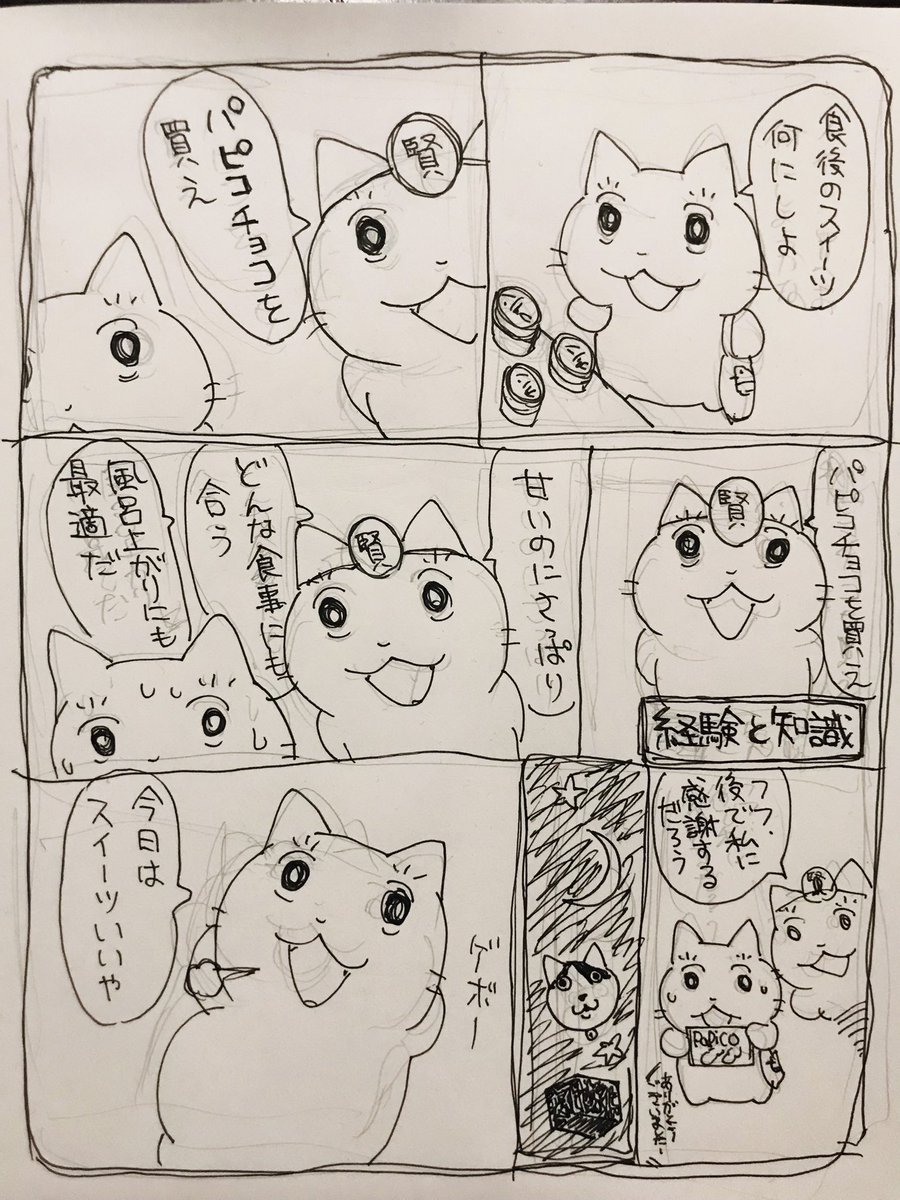 食後のスイーツ
何にしよ
賢
パピコチョコを
買え
賢
パピコチョコを買え
経験と知識
甘いのにさっぱり
賢
どんな食事にも
合う
風呂上がりにも
最適だ
フフ、
後で私に
感謝する
だろう
賢
Papico
ありがとう
ございましたー
デーボー
今日は
スイーツいいや